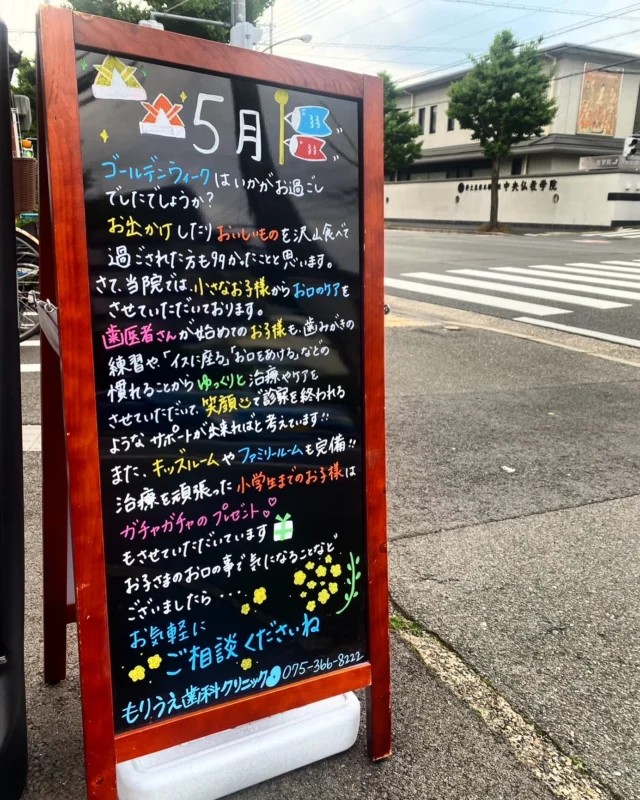 5月
ゴールデンウィークはいかがお過ごし
でしたでしょうか?
お出かけしたりおいしいものを沢山食べて
過ごされた方も多かったことと思います。
さて、当院では、小さなお子様からお口のケアを
させていただいております。
歯医者さんが始めてのお子様も、歯みがきの
練習や、「イスに座る」、「お口をあける」などの
慣れることからゆっくりと治療やケアを
させていただいて、笑顔で診察を終われる
ようなサポートが出来ればと考えています!!
また、キッズルームやファミリールームも完備!!
治療を頑張った小学生までのお子様は
ガチャガチャのプレゼント♡♡
もさせていただいています
お子さまのお口の事で気になることなど
ございましたら・・・
お気軽に
ご相談くださいね
もりうえ歯科クリニック 075-366-8222
中央仏教学院